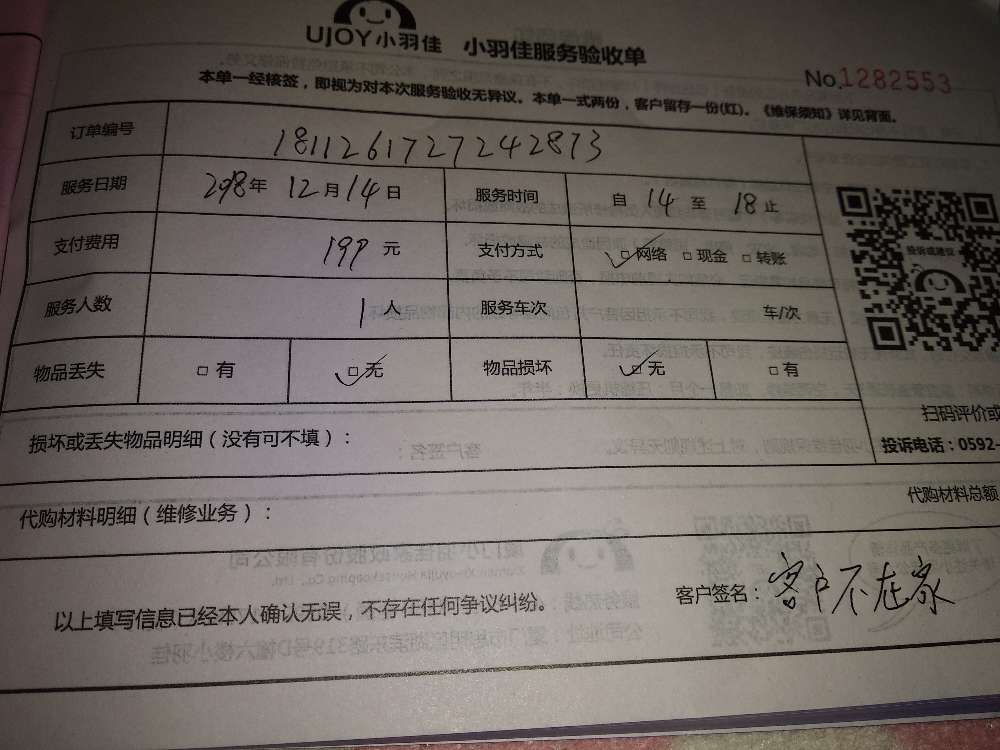 UJOY小羽佳 小羽佳服务验收单
No.1282553
本单一经核签，即视为对本次服务验收无异议。本单一式两份，客户留存一份(红)。《维保须知》详见背面。
订单编号 1811261727242873
服务日期 2018年 12月14日 服务时间 自 14 至 18止
支付费用 199元 支付方式 □网络 □现金 □转账
服务人数 1人 服务车次 车/次
物品丢失 □有 □无 物品损坏 □无 □有
投诉或建议
扫码评价或
损坏或丢失物品明细（没有可不填）：
投诉电话：0592-
代购材料明细（维修业务）：
代购材料总额
以上填写信息已经本人确认无误，不存在任何争议纠纷。
客户签名：客户不在家